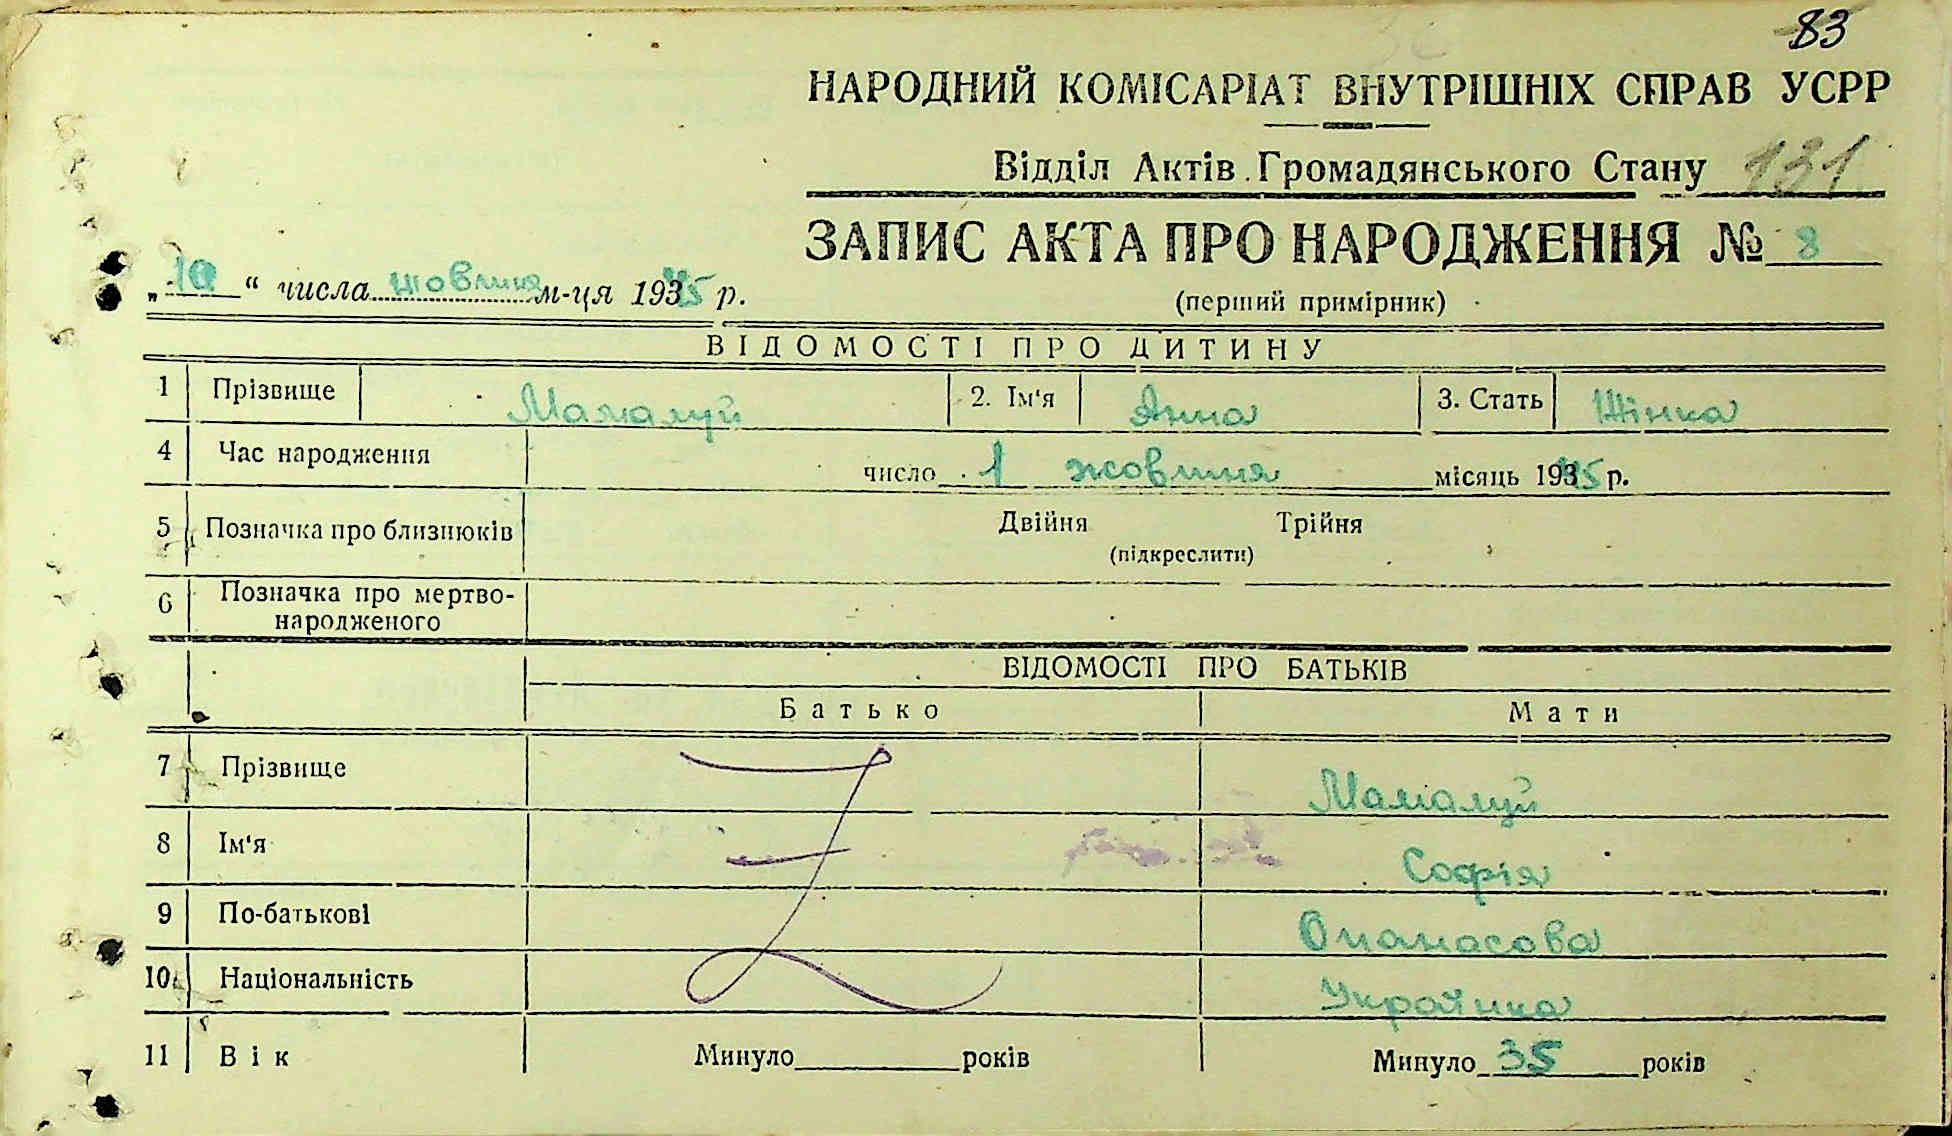 83
НАРОДНИЙ КОМІСАРІАТ ВНУТРІШНІХ СПРАВ УСРР
Відділ Актів Громадянського Стану 131
ЗАПИС АКТА ПРО НАРОДЖЕННЯ № 8
„10“ числа жовтня м-ця 1945 р.
(перший примірник)
ВІДОМОСТІ ПРО ДИТИНУ
1 Прізвище Мамалуй 2. Ім'я Анна 3. Стать Жінка
4 Час народження число 1 жовтня місяць 1945 р.
5 Позначка про близнюків Двійня Трійня
(підкреслити)
6 Позначка про мертво-
народженого
ВІДОМОСТІ ПРО БАТЬКІВ
Батько Мати
7 Прізвище Мамалуй
8 Ім'я Софія
9 По-батькові Опанасова
10 Національність Українка
11 Вік Минуло років Минуло 35 років